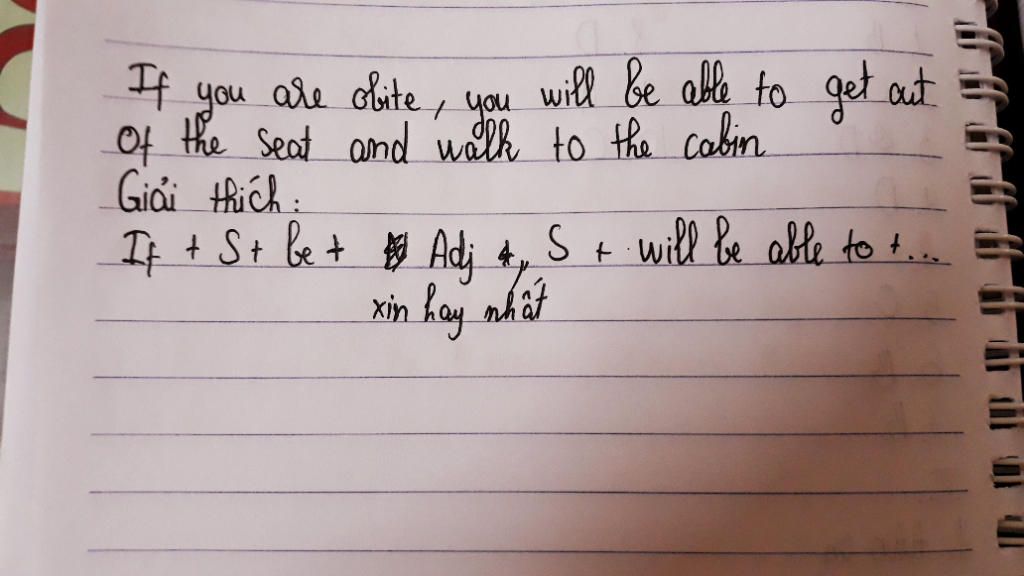 If you are obite, you will be able to get out
Of the seat and walk to the cabin
Giải thích:
If + S + be + Adj +, S + will be able to + ...
xin hay nhất